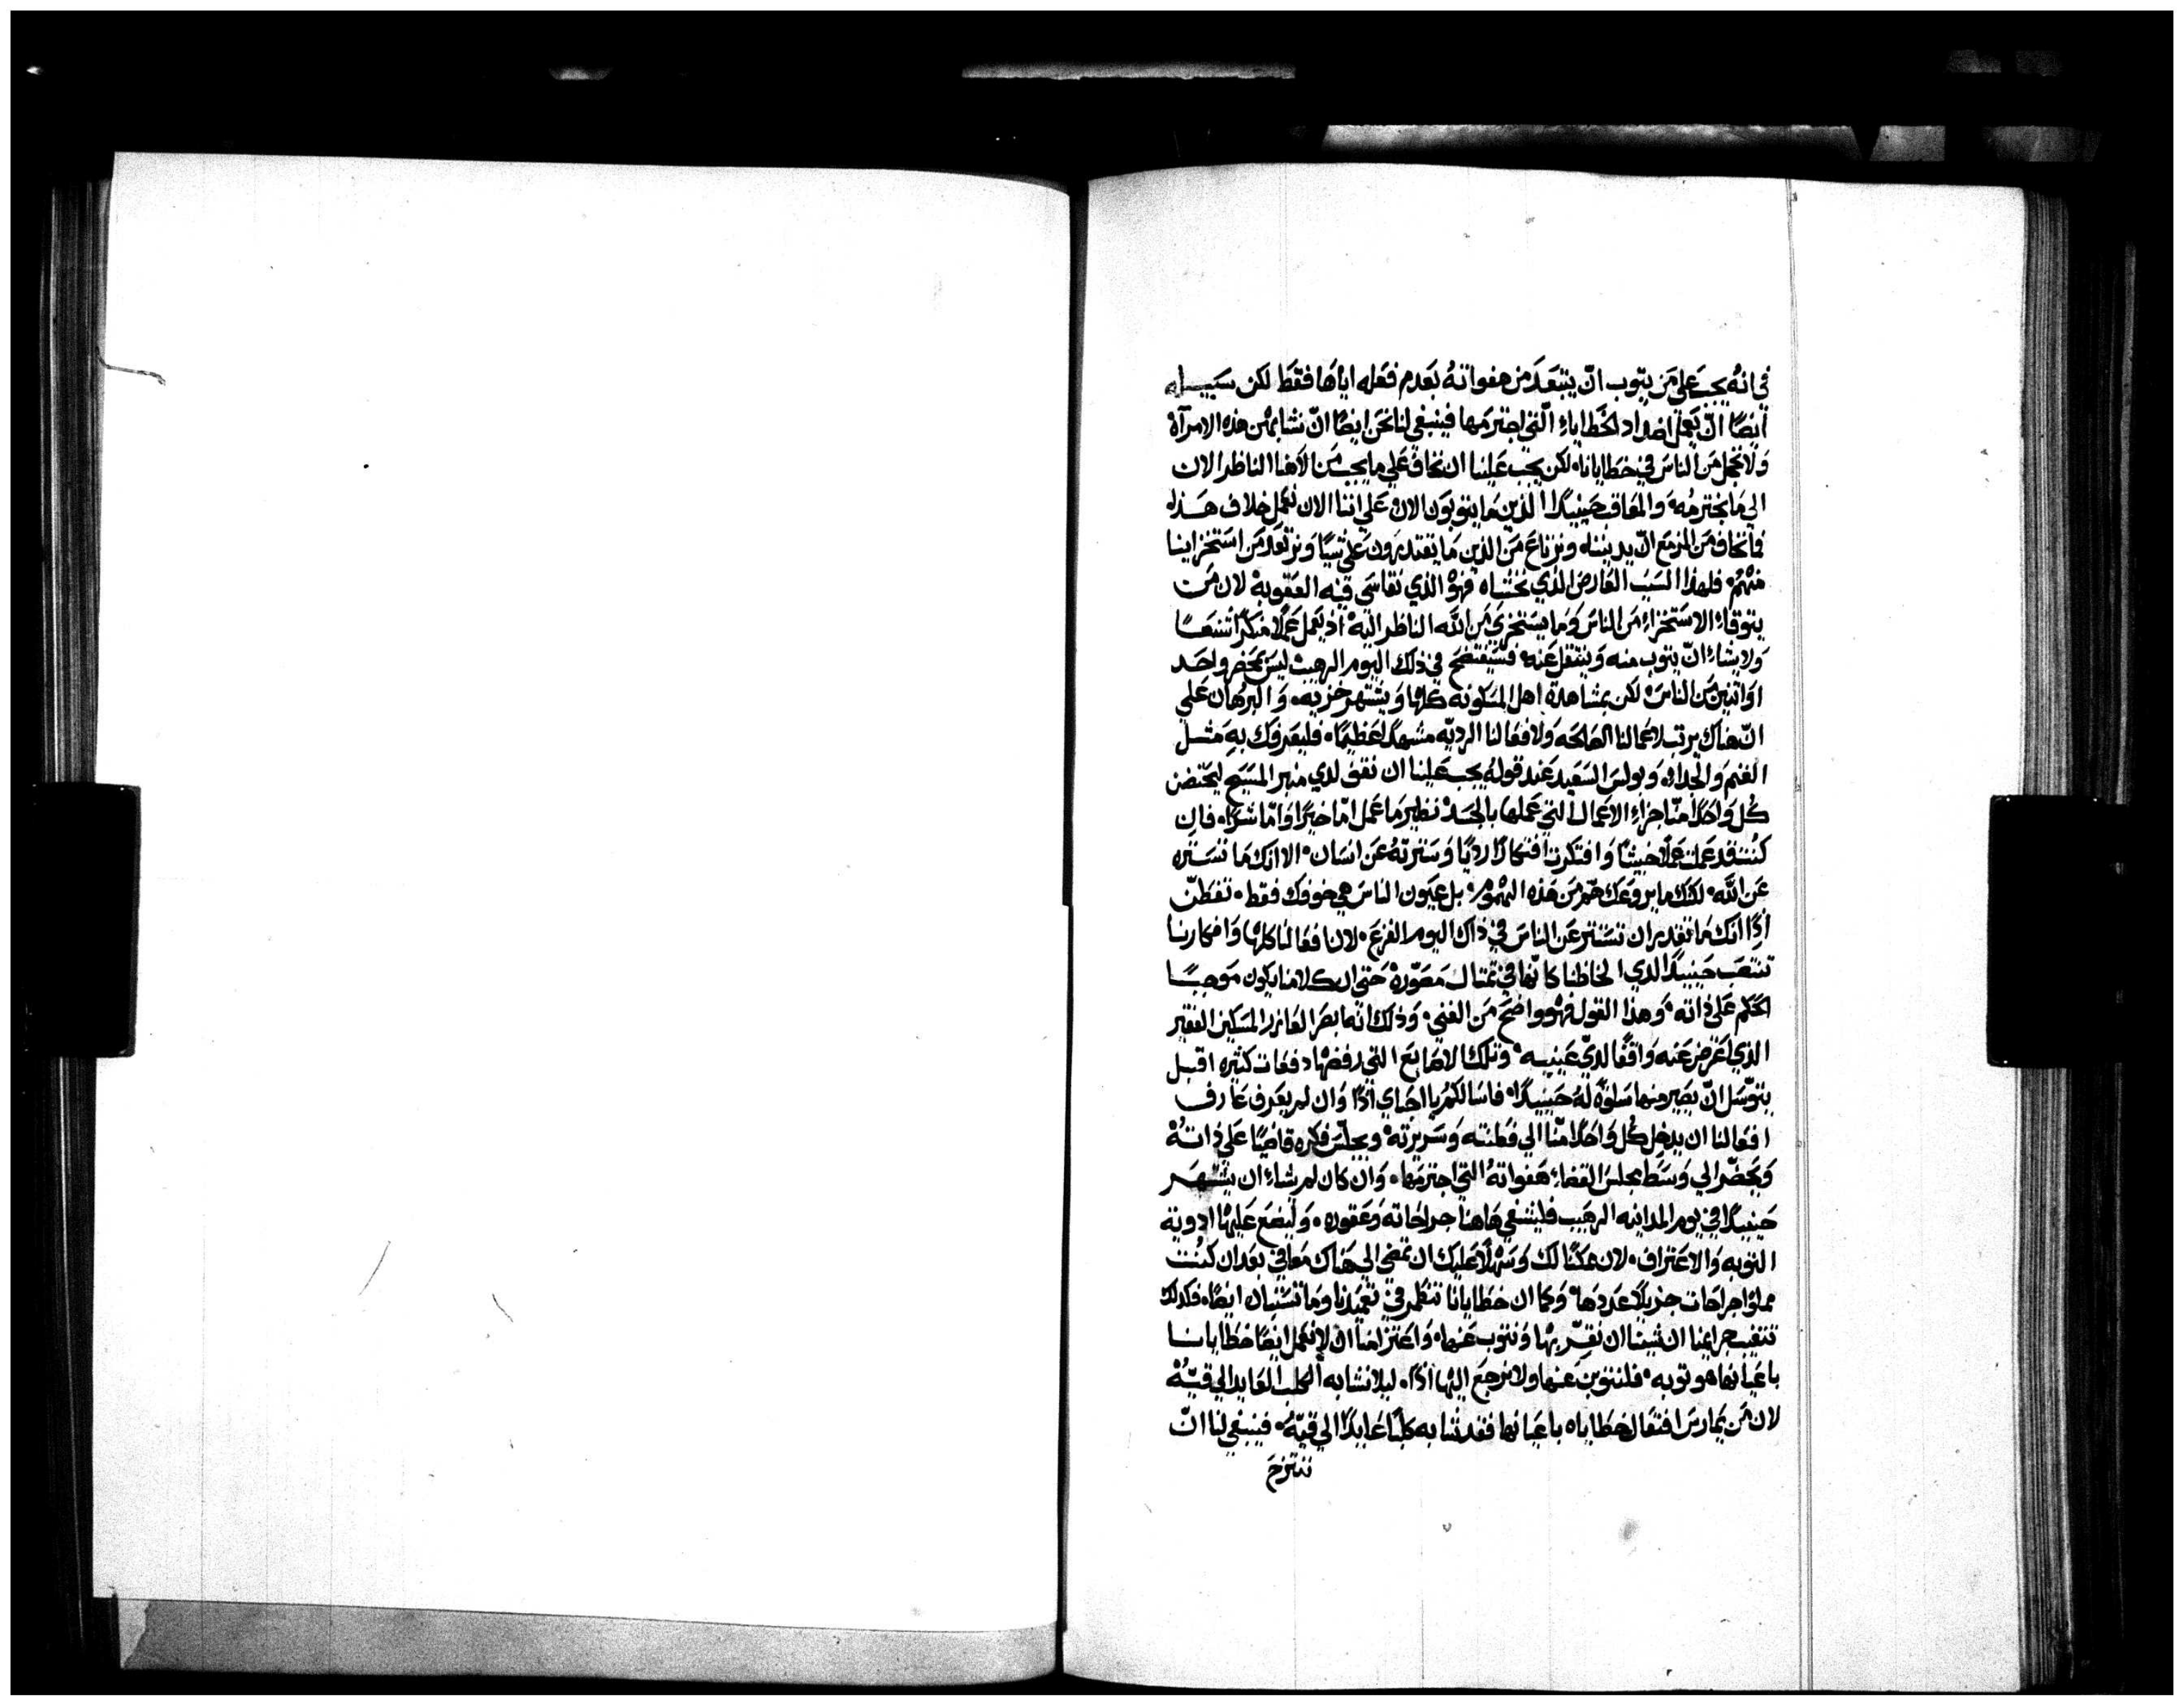 في انهُ يجب على من يتوب انّ يبتعد من هفواتهُ بعدم فعله اياها فقط لكن سبيله
ايضًا انّ يعمل اضداد الخطاياء الّتي اجترمها فينبغي لنا نحن ايضًا انّ نشابه هذه الامرآة
ولا نخجل من الناس في خطايانا. لكن يجب علينا ان نخاف على ما يجب من لاهنا الناظر الان
الي ما نجترمهُ. والمعاقب حينيدًا الذين ما يتوبون الان. على اننا الان نعمل خلاف هذه
فانخاف من المزمع انّ يديننا. ونرتاع من الذين ما يقتدرون على شيًا ونرتعد من استخزاينا
منهم. فلهذا السبب العارض الذي نخشاه فهو الذي نقاسي فيه العقوبة لان من
يتوقاء الاستخزاء من الناس وما يستخزي من الله الناظر اليه اذ يعمل عملًا منكرًا شنعًا
ولا يشاء انّ يتوب منه وينتقل عنه. فسيفتضح في ذلك اليوم الرهيب ليس بمحضر واحد
او اتنين من الناس. لكن بمشاهدة اهل المسكونة كلها ويشتهر خزيه. والبرهان على
انّ هناك يرتب لاعمالنا الصالحه ولافعالنا الرديّه مشهدًا عظيمًا. فليعرفك به مثل
الغنم والجداء. وبولس السعيد عند قولهُ يجب علينا ان نقف لدي منبر المسيح ليحتضن
كُل واحدًا منّا جزاء الاعمال التي عملها بالجسد نظير ما عمل امّا خيرًا وامّا شرًا. فان
كنت قد عملت عملًا خبيثًا وافتكرت افتكارًا رديًا وسترتهُ عن انسان. الا انك ما تستره
عن الله. لكنك ما يروعك همّ من هذه الهموم. بل عيون الناس هي خوفك فقط. تفطّن
اذًا انك ما تقدر ان تستتر عن الناس في ذاك اليوم الفزع. لان افعالنا كلها وافكارنا
تنتصب حينيدًا لدي الحاظنا كانّها في تمتال مصوّرة حتى ان كلامنا يكون موجبًا
الحكم على ذاته. وهذا القول فهو واضح من الغني. وذلك انه ابصر العازر المسكين الفقير
الذي اعرض عنه واقفًا لديّ عينيه. وتلك الاصابع التي رفضها دفعات كثيره اقبل
يتوسّل انّ يصير منها سلوة لهُ حينيدًا. فاسالكم يا احباي اذًا وان لم يعرف عارف
افعالنا ان يدخل كُل واحدًا منّا الي فطنته وسريرته. ويجلّس فكره قاضيًا على ذاتهُ
ويحضّر الي وسط مجلس القضاء هفواتهُ التي اجترمها. وان كان لم يشاء ان يشهر
حينيدًا في يوم المداينه الرهيب فليشفي هاهنا جراحاته وعقوره. وليضع عليها ادوية
التوبه والاعتراف. لان ممكنًا لك وسهلًا عليك ان تمضي الي هناك معافي بعد ان كنت
مملوًا جراحات جزيلًا عددها. وكما ان خطايانا تنطمر في تعميدنا وما تستبان ايضًا. فكذلك
تنغيب جرايمنا ان شينا ان نقرّ بها ونتوب عنها. واعتزامنا انّ لا نعمل ايضًا خطايانا
باعيانها هو توبه. فلنتوبن عنها ولا نرجع اليها اذًا. ليلا نشابه الكلب العايد الي قيّهُ
لان من يمارس افتعال خطاياه باعيانها فقد شابه كلبًا عايدًا الي قيّهُ. فينبغي لنا انّ
ننتزح